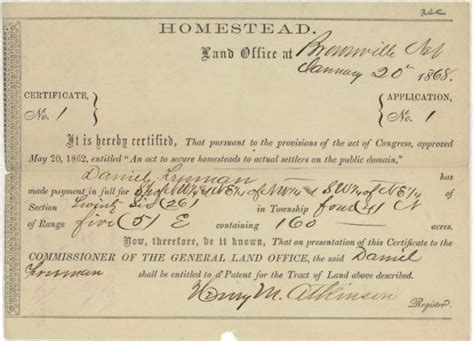 HOMESTEAD.
Land Office at Brownville Neb
January 20th 1868.
CERTIFICATE, No. 1
APPLICATION, No. 1
It is hereby certified, That pursuant to the provisions of the act of Congress, approved
May 20, 1862, entitled "An act to secure homesteads to actual settlers on the public domain,"
Daniel Freeman has
made payment in full for S½ of NW¼ NE¼ of NW¼ & SW¼ of NE¼ of
Section Twenty Six (26) in Township four (4) N
of Range five (5) E containing 160 acres.
Now, therefore, be it known, That on presentation of this Certificate to the
COMMISSIONER OF THE GENERAL LAND OFFICE, the said Daniel
Freeman shall be entitled to a Patent for the Tract of Land above described.
Henry M. Atkinson
Register.